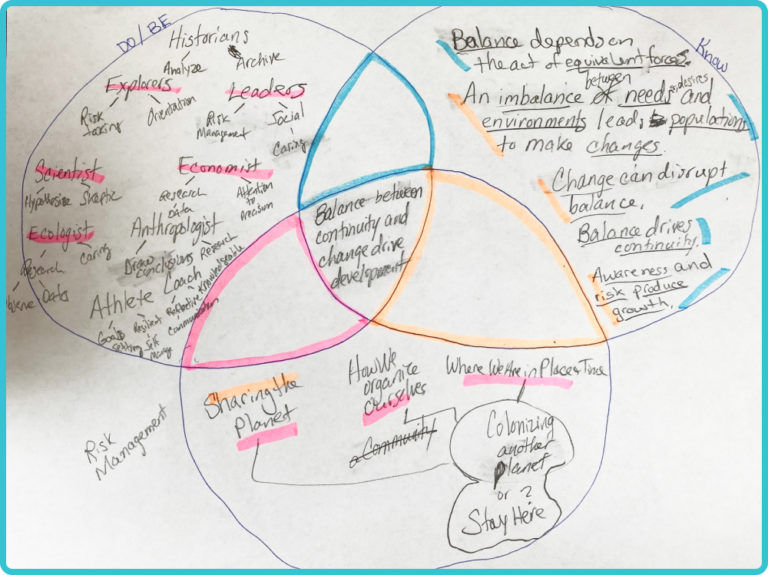 DO/BE
Historians
Analyze
Archive
Explorers
Risk
taking
Orientation
Leaders
Risk
Management
Social
Caring
Scientist
Hypothesize
Skeptic
Economist
Research
Data
Attention
to
Precision
Ecologist
Research
Caring
Data
Anthropologist
Draw
Conclusions
Research
Knowledgeable
Athlete
Goal
Setting
Resilient
Self
Manage
Coach
Reflective
Communication
Know
Balance depends on
the act of equivalent forces.
between
desires
An imbalance of needs and
environments leads populations
to make changes.
Change can disrupt
balance.
Balance drives
continuity.
Awareness and
risk produce
growth.
Balance between
continuity and
change drive
development
Sharing the
Planet
How We
organize
Ourselves
a Community
Where We Are in Place & Time
Colonizing
another
planet
or ?
Stay Here
Risk
Management